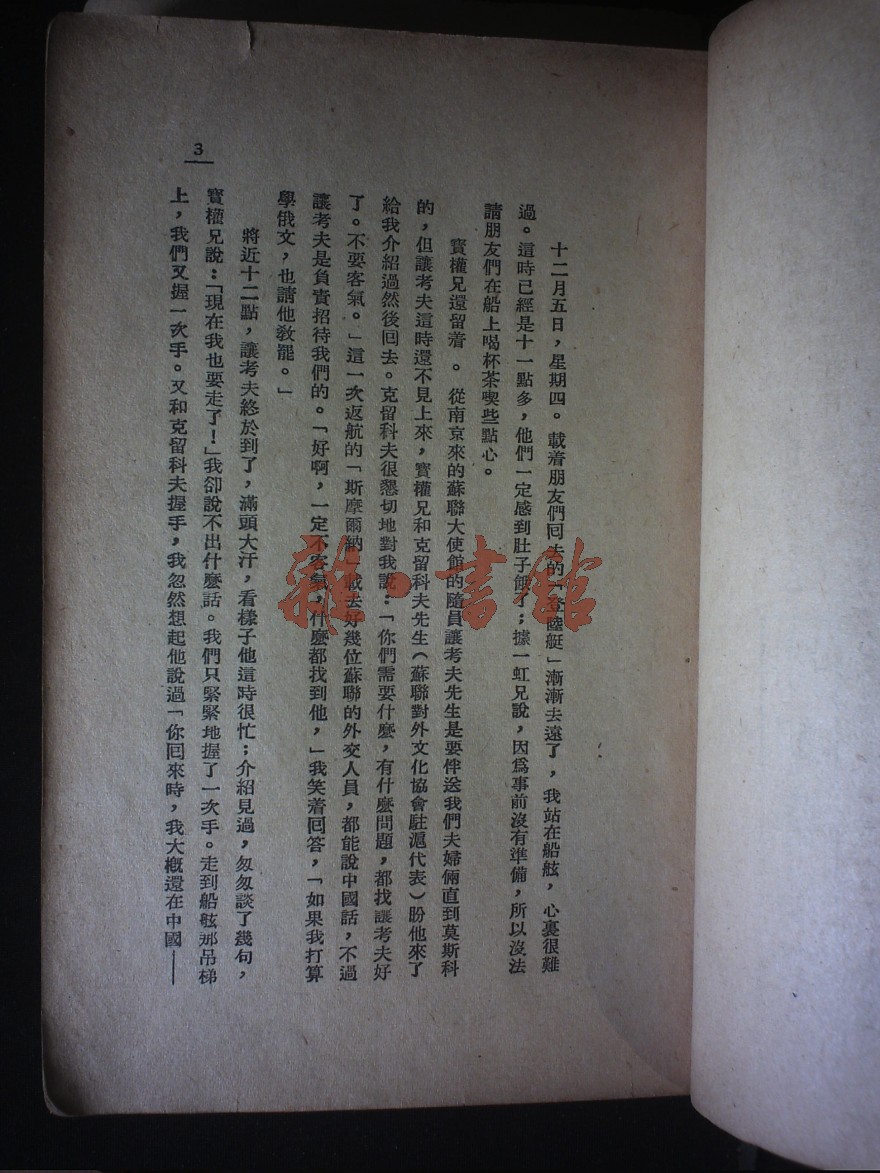 十二月五日，星期四。載着朋友們囘去的「登陸艇」漸漸去遠了，我站在船舷，心裏很難
過。這時已經是十一點多，他們一定感到肚子餓了；據一虹兄說，因爲事前沒有準備，所以沒法
請朋友們在船上喝杯茶喫些點心。
寳權兄還留着。從南京來的蘇聯大使館的隨員讓考夫先生是要伴送我們夫婦倆直到莫斯科
的，但讓考夫這時還不見上來，寳權兄和克留科夫先生（蘇聯對外文化協會駐滬代表）盼他來了
給我介紹過然後囘去。克留科夫很懇切地對我說：「你們需要什麽，有什麽問題，都找讓考夫好
了。不要客氣。」這一次返航的「斯摩爾納」載去好幾位蘇聯的外交人員，都能說中國話，不過
讓考夫是負責招待我們的。「好啊，一定不客氣，什麽都找到他，」我笑着回答，「如果我打算
學俄文，也請他敎罷。」
將近十二點，讓考夫終於到了，滿頭大汗，看樣子他這時很忙；介紹見過，匆匆談了幾句，
寳權兄說：「現在我也要走了！」我卻說不出什麽話。我們只緊緊地握了一次手。走到船舷那吊梯
上，我們又握一次手。又和克留科夫握手，我忽然想起他說過「你囘來時，我大槪還在中國——
3
雜·書館